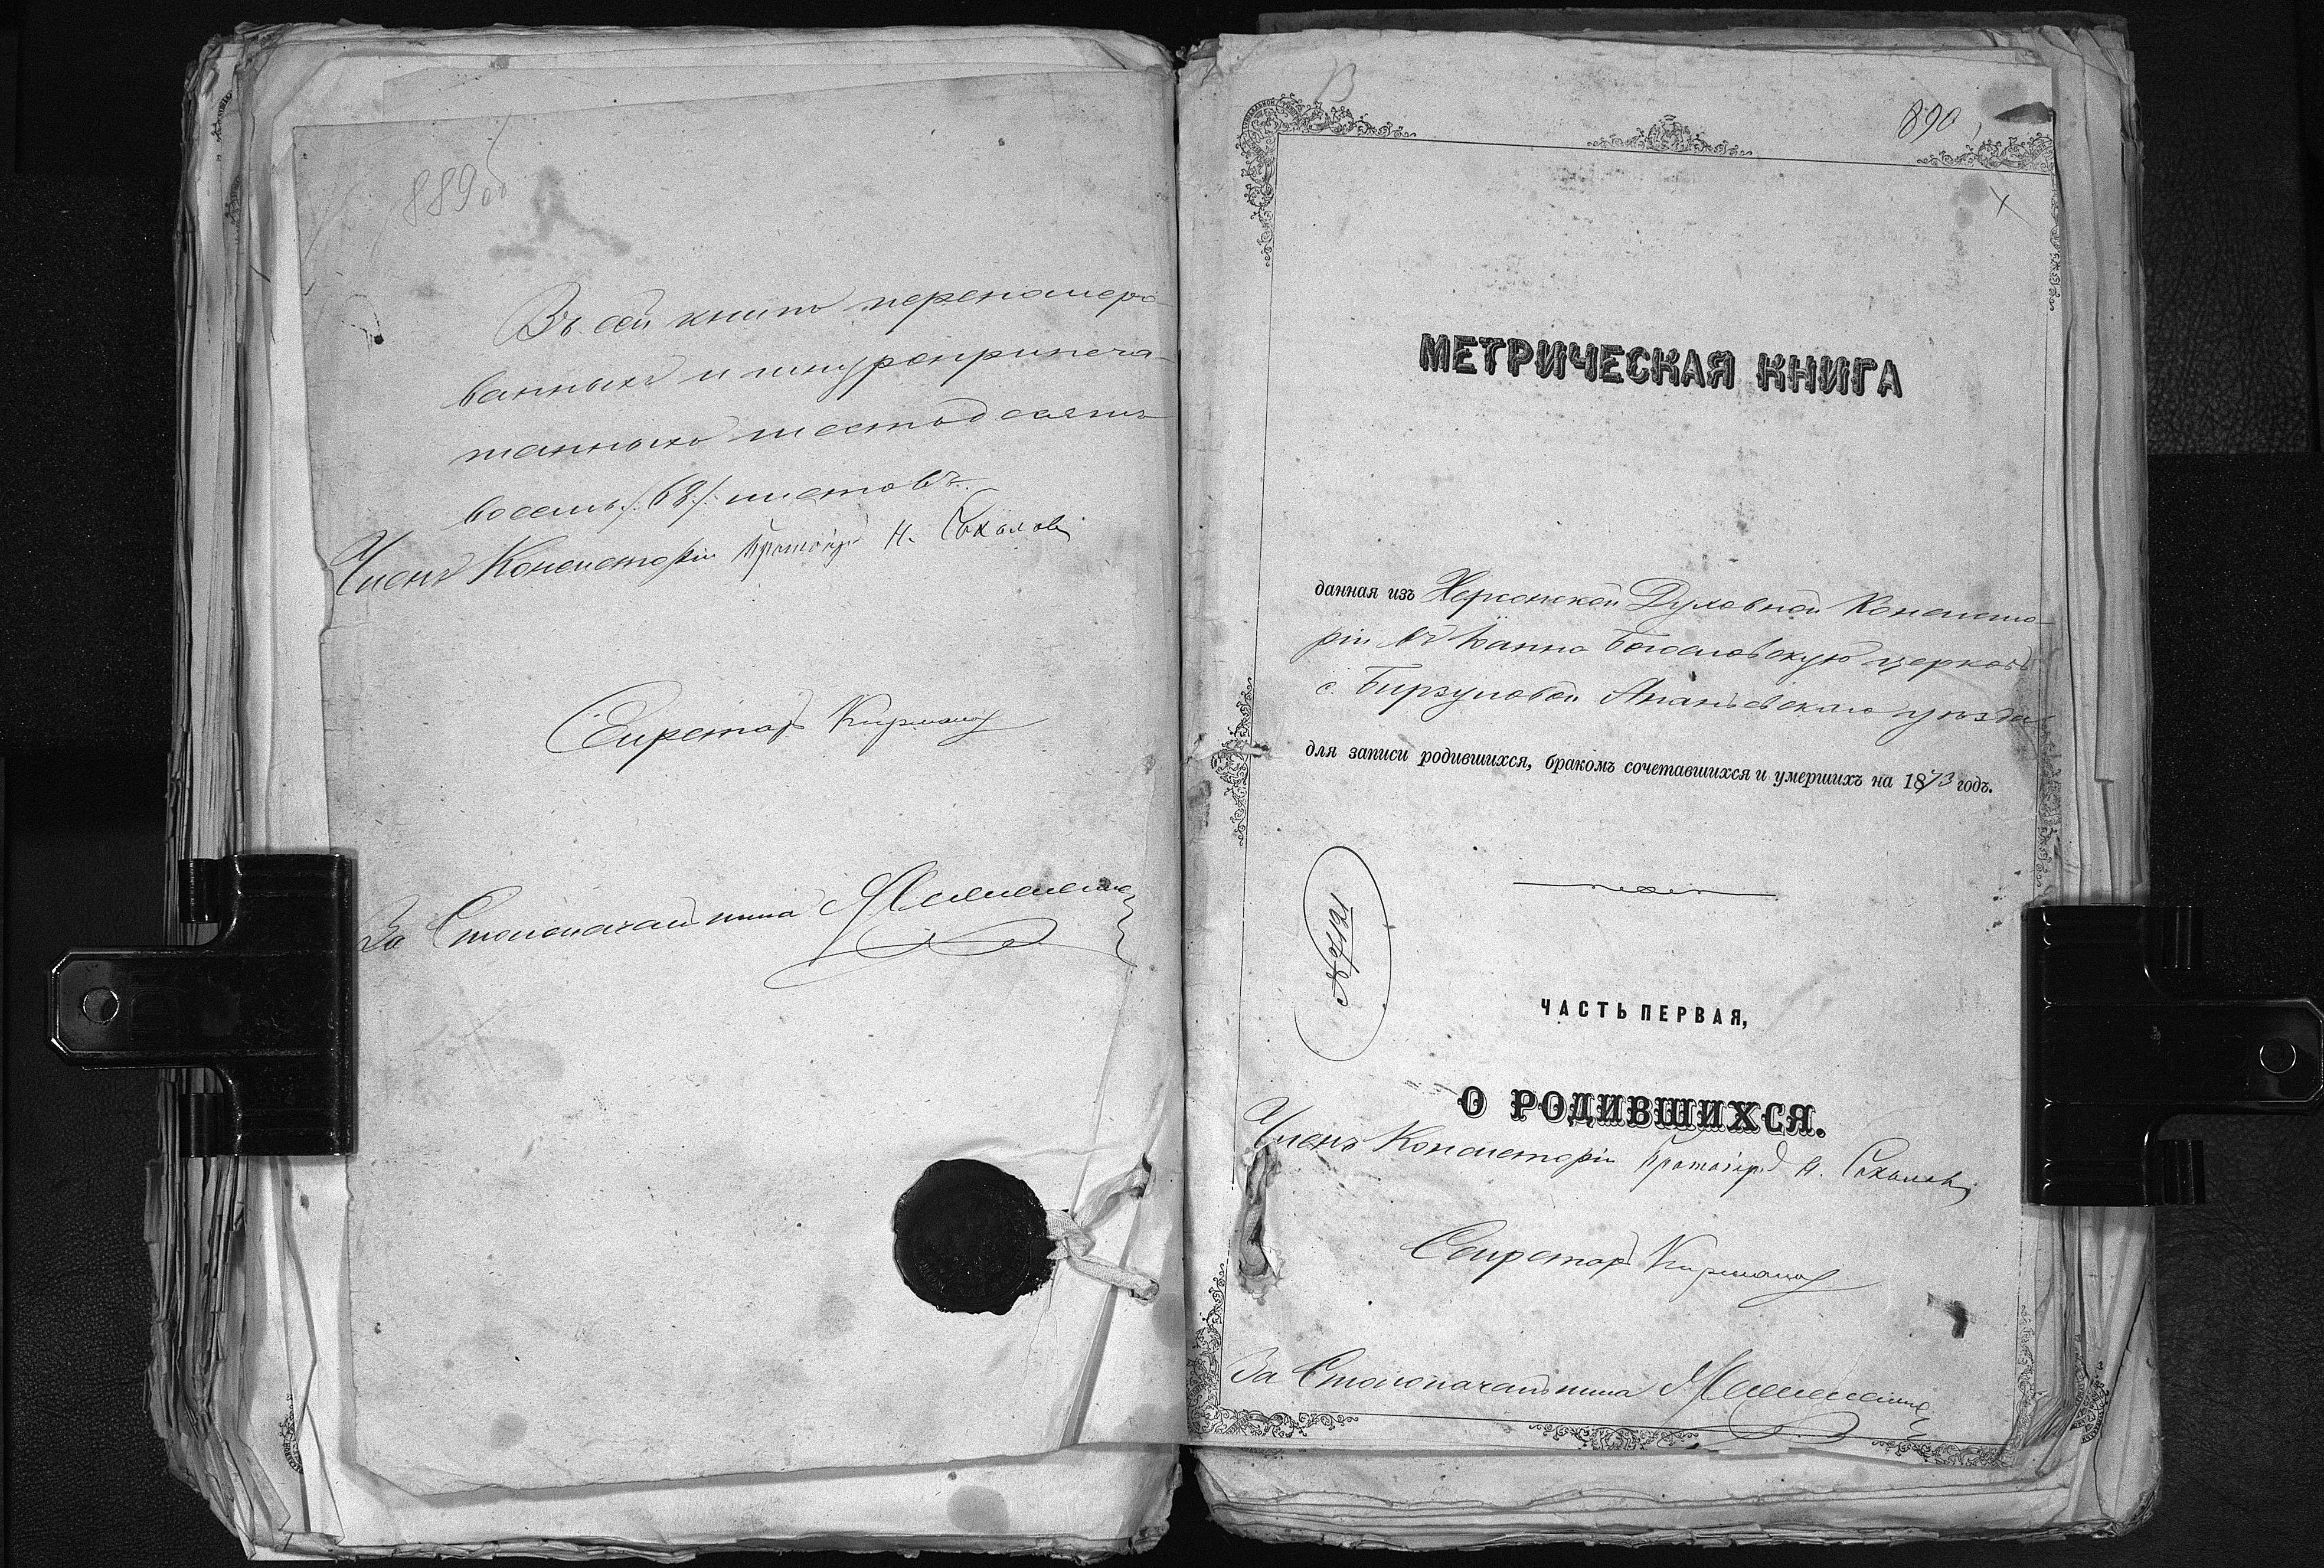 889об
Въ сей книгѣ перенумеро-
ванныхъ и шнуроприпеча-
танныхъ шестьдесятъ
восемь /68/ листовъ.
Членъ Консисторіи Протоіерей Н. Соколовъ
Секретарь
За Столоначальника
890
МЕТРИЧЕСКАЯ КНИГА
данная изъ Херсонской Духовной Консисто-
ріи въ Іоанно Богословскую церковь
с. Бирзуловой Ананьевскаго уѣзда
для записи родившихся, бракомъ сочетавшихся и умершихъ на 1873 годъ.
№ 7121
ЧАСТЬ ПЕРВАЯ,
О РОДИВШИХСЯ.
Членъ Консисторіи Протоіерей Н. Соколовъ
Секретарь
За Столоначальника